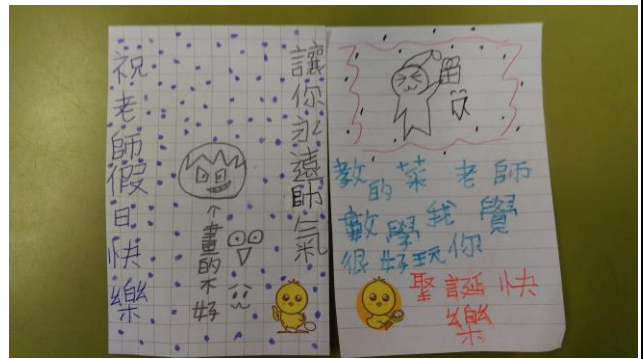 祝老師假日快樂
↑畫的不好
讓你永遠師氣
教的菜老師
數學我覺
很好玩你
聖誕快
樂